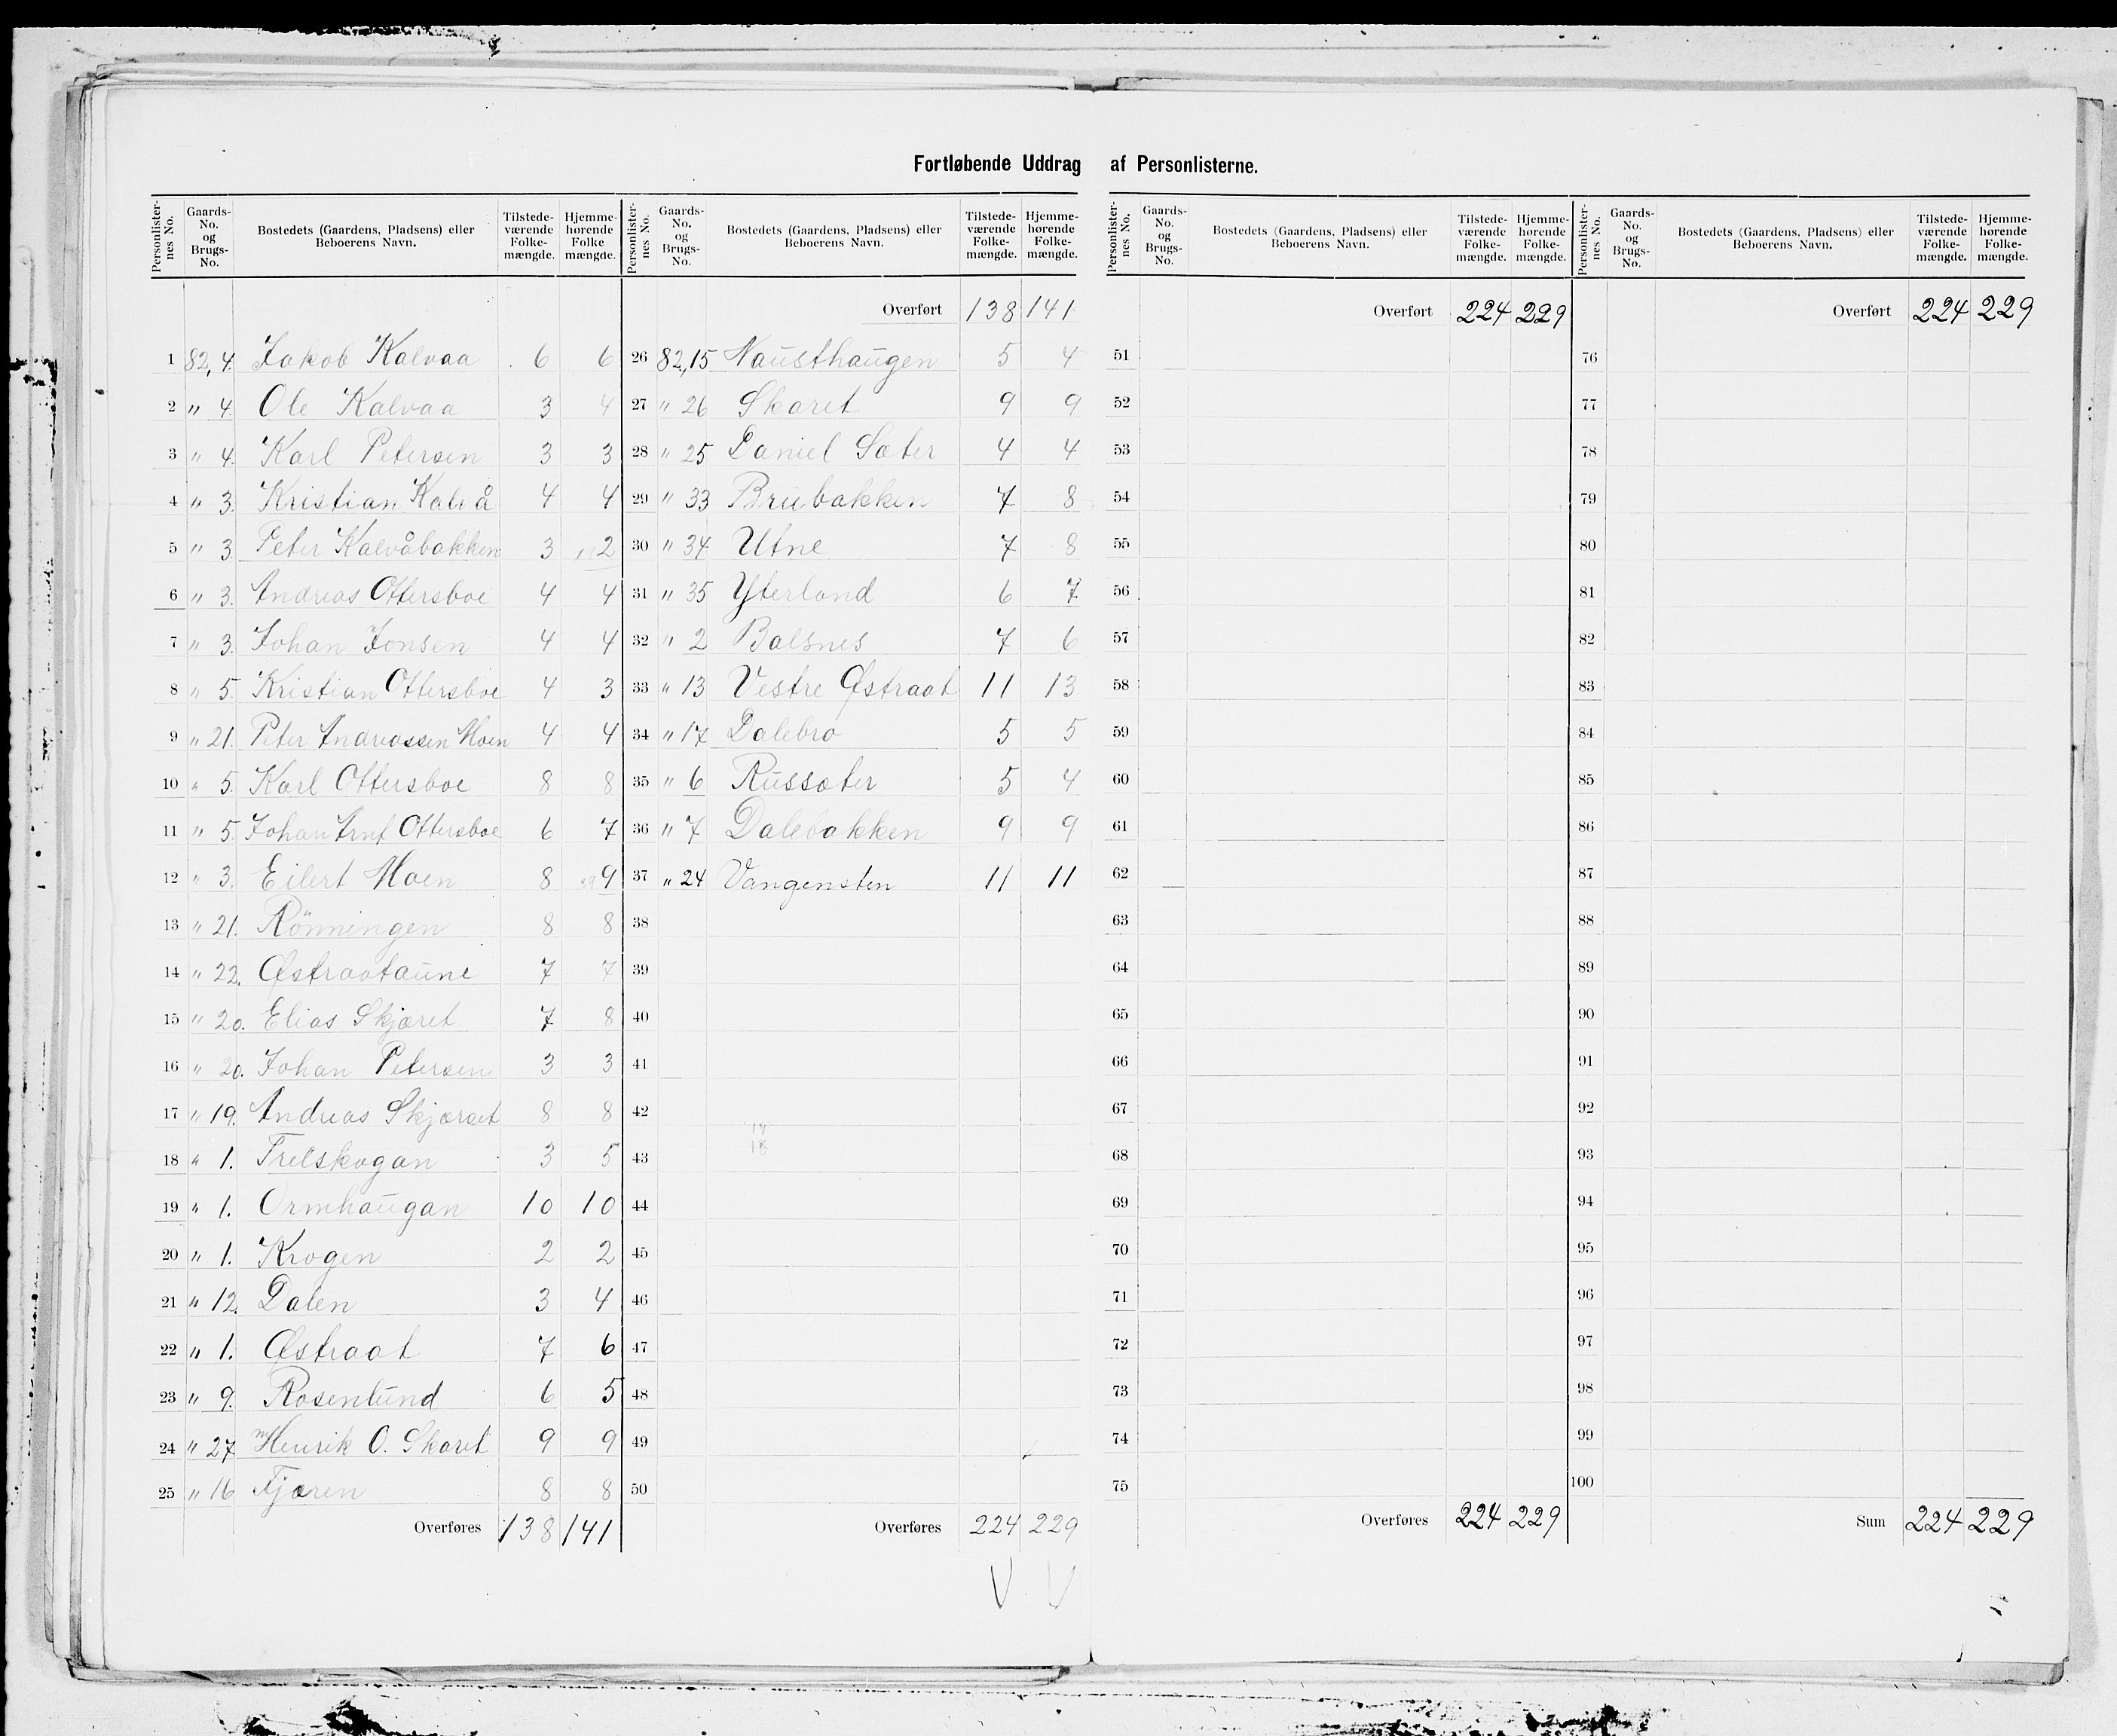 Fortløbende Uddrag af Personlisterne.
Personlister-nes No. Gaards-No. og Brugs-No. Bostedets (Gaardens, Pladsens) eller Beboerens Navn. Tilstede-værende Folke-mængde. Hjemme-hørende Folke mængde.
1 82,4. Jakob Kalvaa 6 6
2 " 4. Ole Kalvaa 3 4
3 " 4. Karl Petersen 3 3
4 " 3. Kristian Kalvå 4 4
5 " 3. Peter Kalvåbakken 3 2
6 " 3. Andreas Ottersboe 4 4
7 " 3. Johan Jonsen 4 4
8 " 5. Kristian Ottersboe 4 3
9 " 21. Peter Andreassen Moen 4 4
10 " 5. Karl Ottersboe 8 8
11 " 5. Johan Arnt Ottersboe 6 7
12 " 3. Eilert Moen 8 9
13 " 21. Rönningen 8 8
14 " 22. Østraataune 7 7
15 " 20. Elias Skjæret 7 8
16 " 20. Johan Petersen 3 3
17 " 19. Andreas Skjæret 8 8
18 " 1. Trelskogan 3 5
19 " 1. Ormhaugan 10 10
20 " 1. Krogen 2 2
21 " 12. Dalen 3 4
22 " 1. Østraat 7 6
23 " 9. Rosenlund 6 5
24 " 27 Henrik O. Skaret 9 9
25 " 16 Fjæren 8 8
Overføres 138 141
Personlister-nes No. Gaards-No. og Brugs-No. Bostedets (Gaardens, Pladsens) eller Beboerens Navn. Tilstede-værende Folke-mængde. Hjemme-hørende Folke-mængde.
Overført 138 141
26 82,15 Nausthaugen 5 4
27 " 26 Skaret 9 9
28 " 25 Daniel Sæter 4 4
29 " 33 Brubakken 7 8
30 " 34 Utne 7 8
31 " 35 Yterland 6 7
32 " 2 Balsnes 7 6
33 " 13 Vestre Østraat 11 13
34 " 17 Dalebro 5 5
35 " 6 Russæter 5 4
36 " 7 Dalebakken 9 9
37 " 24 Vangensten 11 11
38
39
40
41
42
43
44
45
46
47
48
49
50
Overføres 224 229
Personlister-nes No. Gaards-No. og Brugs-No. Bostedets (Gaardens, Pladsens) eller Beboerens Navn. Tilstede-værende Folke-mængde. Hjemme-hørende Folke-mængde.
Overført 224 229
51
52
53
54
55
56
57
58
59
60
61
62
63
64
65
66
67
68
69
70
71
72
73
74
75
Overføres 224 229
Personlister-nes No. Gaards-No. og Brugs-No. Bostedets (Gaardens, Pladsens) eller Beboerens Navn. Tilstede-værende Folke-mængde. Hjemme-hørende Folke-mængde.
Overført 224 229
76
77
78
79
80
81
82
83
84
85
86
87
88
89
90
91
92
93
94
95
96
97
98
99
100
Sum 224 229